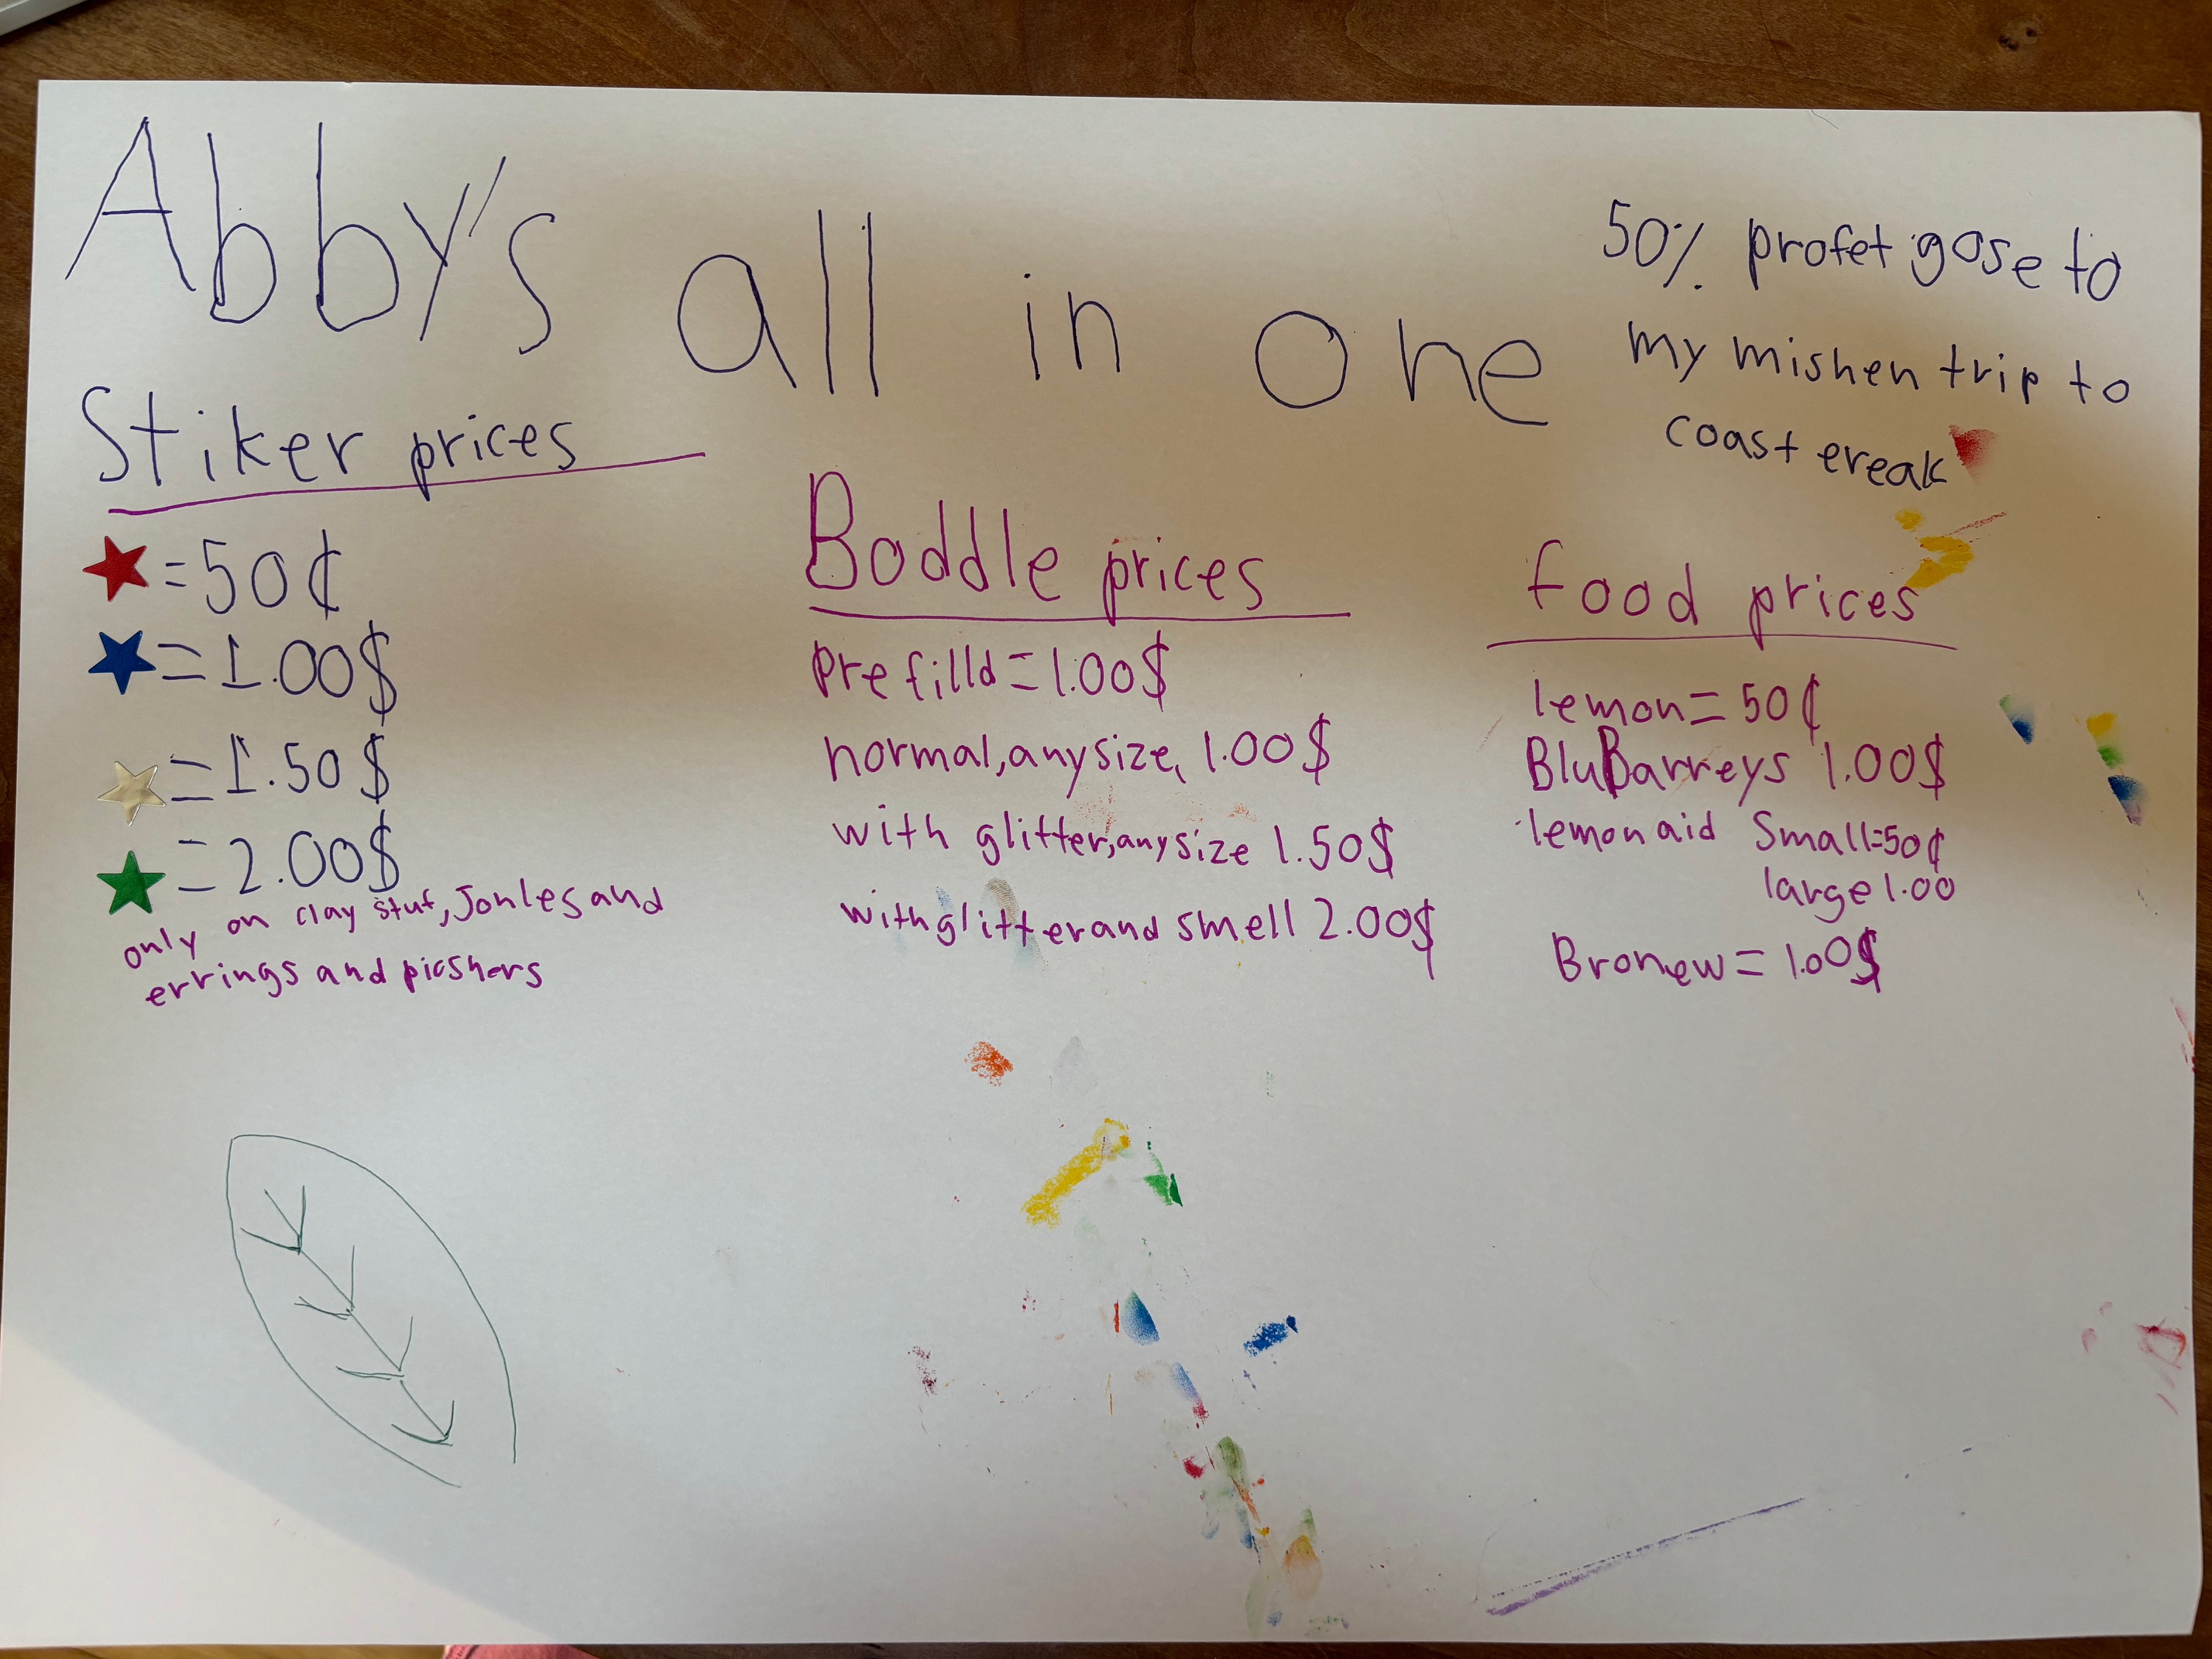 Abby's all in one
50% profet gose to
my mishen trip to
coast ereak
Stiker prices
=50¢
=1.00$
=1.50$
=2.00$
only on clay stuf, Jonles and
errings and picshers
Boddle prices
Prefilld=1.00$
normal, any size, 1.00$
with glitter, any size 1.50$
with glitter and smell 2.00$
food prices
lemon=50¢
BluBarreys 1.00$
lemon aid Small=50¢
large 1.00
Bronew=1.00$